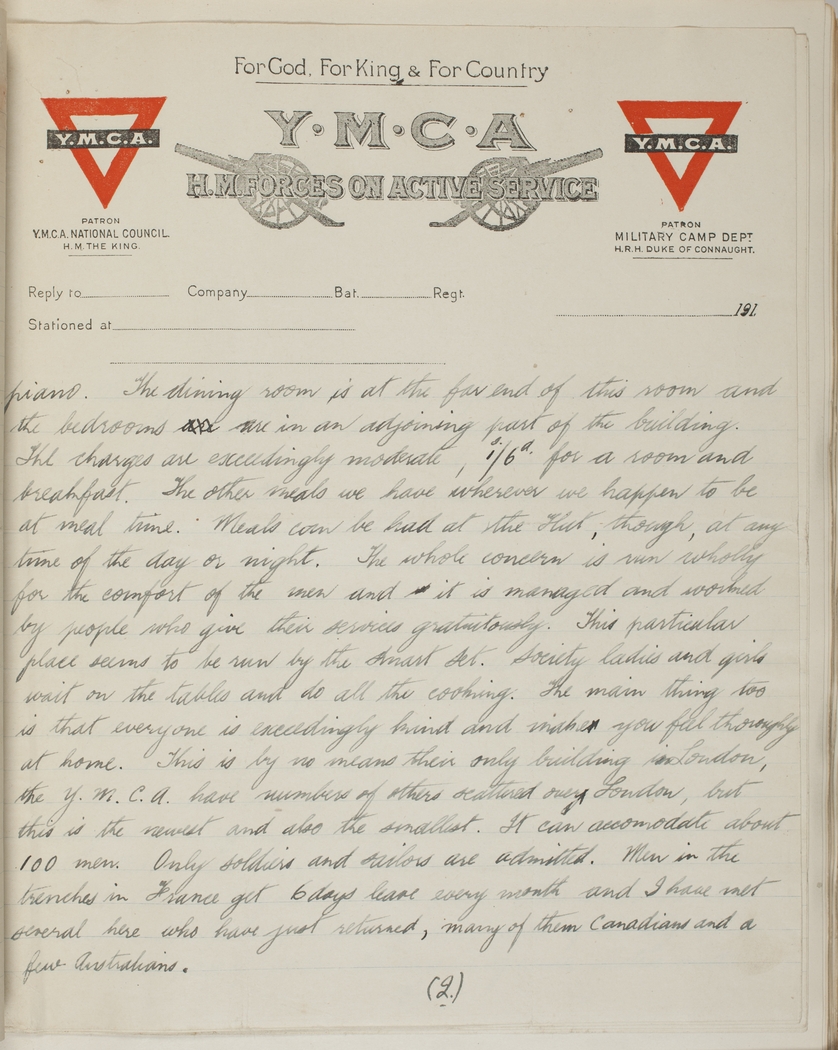 For God, For King & For Country
Y·M·C·A
H.M. FORCES ON ACTIVE SERVICE
Y.M.C.A.
PATRON
Y.M.C.A. NATIONAL COUNCIL.
H.M. THE KING.
Y.M.C.A.
PATRON
MILITARY CAMP DEPT
H.R.H. DUKE OF CONNAUGHT.
Reply to Company Bat. Regt.
191
Stationed at
piano. The dining room is at the far end of this room and
the bedrooms are in an adjoining part of the building.
The charges are exceedingly moderate, 1s/6d. for a room and
breakfast. The other meals we have wherever we happen to be
at meal time. Meals can be had at the Hut, though, at any
time of the day or night. The whole concern is run wholly
for the comfort of the men and it is managed and worked
by people who give their services gratuitously. This particular
place seems to be run by the smart set. Society ladies and girls
wait on the tables and do all the cooking. The main thing too
is that everyone is exceedingly kind and makes you feel thoroughly
at home. This is by no means their only building in London,
the Y. M. C. A. have numbers of others scattered over London, but
this is the newest and also the smallest. It can accomodate about
100 men. Only soldiers and sailors are admitted. Men in the
trenches in France get 6 days leave every month and I have met
several here who have just returned, many of them Canadians and a
few Australians.
(2.)